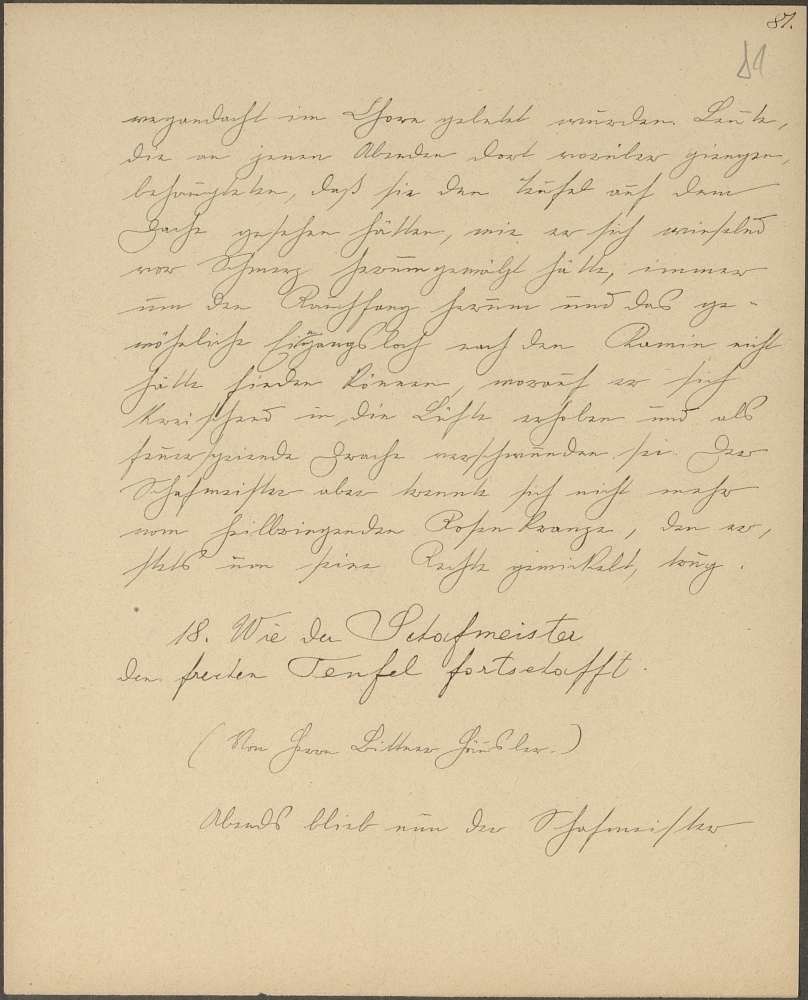 87.
81
wegandacht im Chore gebetet wurden. Leute,
die an jenen Abenden dort vorüber giengen,
behaupteten, daß sie den Teufel auf dem
Dache gesehen hätten, wie er sich winselnd
vor Schmerz herumgewälzt hätte, immer
um den Rauchfang herum und das ge-
wöhnliche Eingangsloch nach den Kamin nicht
hätte finden können, worauf er sich
kreischend in die Lüfte erhoben und als
feuerspeiende Drache verschwunden sei. Der
Schafmeister aber trennte sich nicht mehr
vom heilbringenden Rosenkranze, den er,
stets um seine Rechte gewickelt, trug.
18. Wie der Schafmeister
den frechen Teufel fortschafft.
(Von Herrn Bittner Häusler.)
Abends blieb nun der Schafmeister